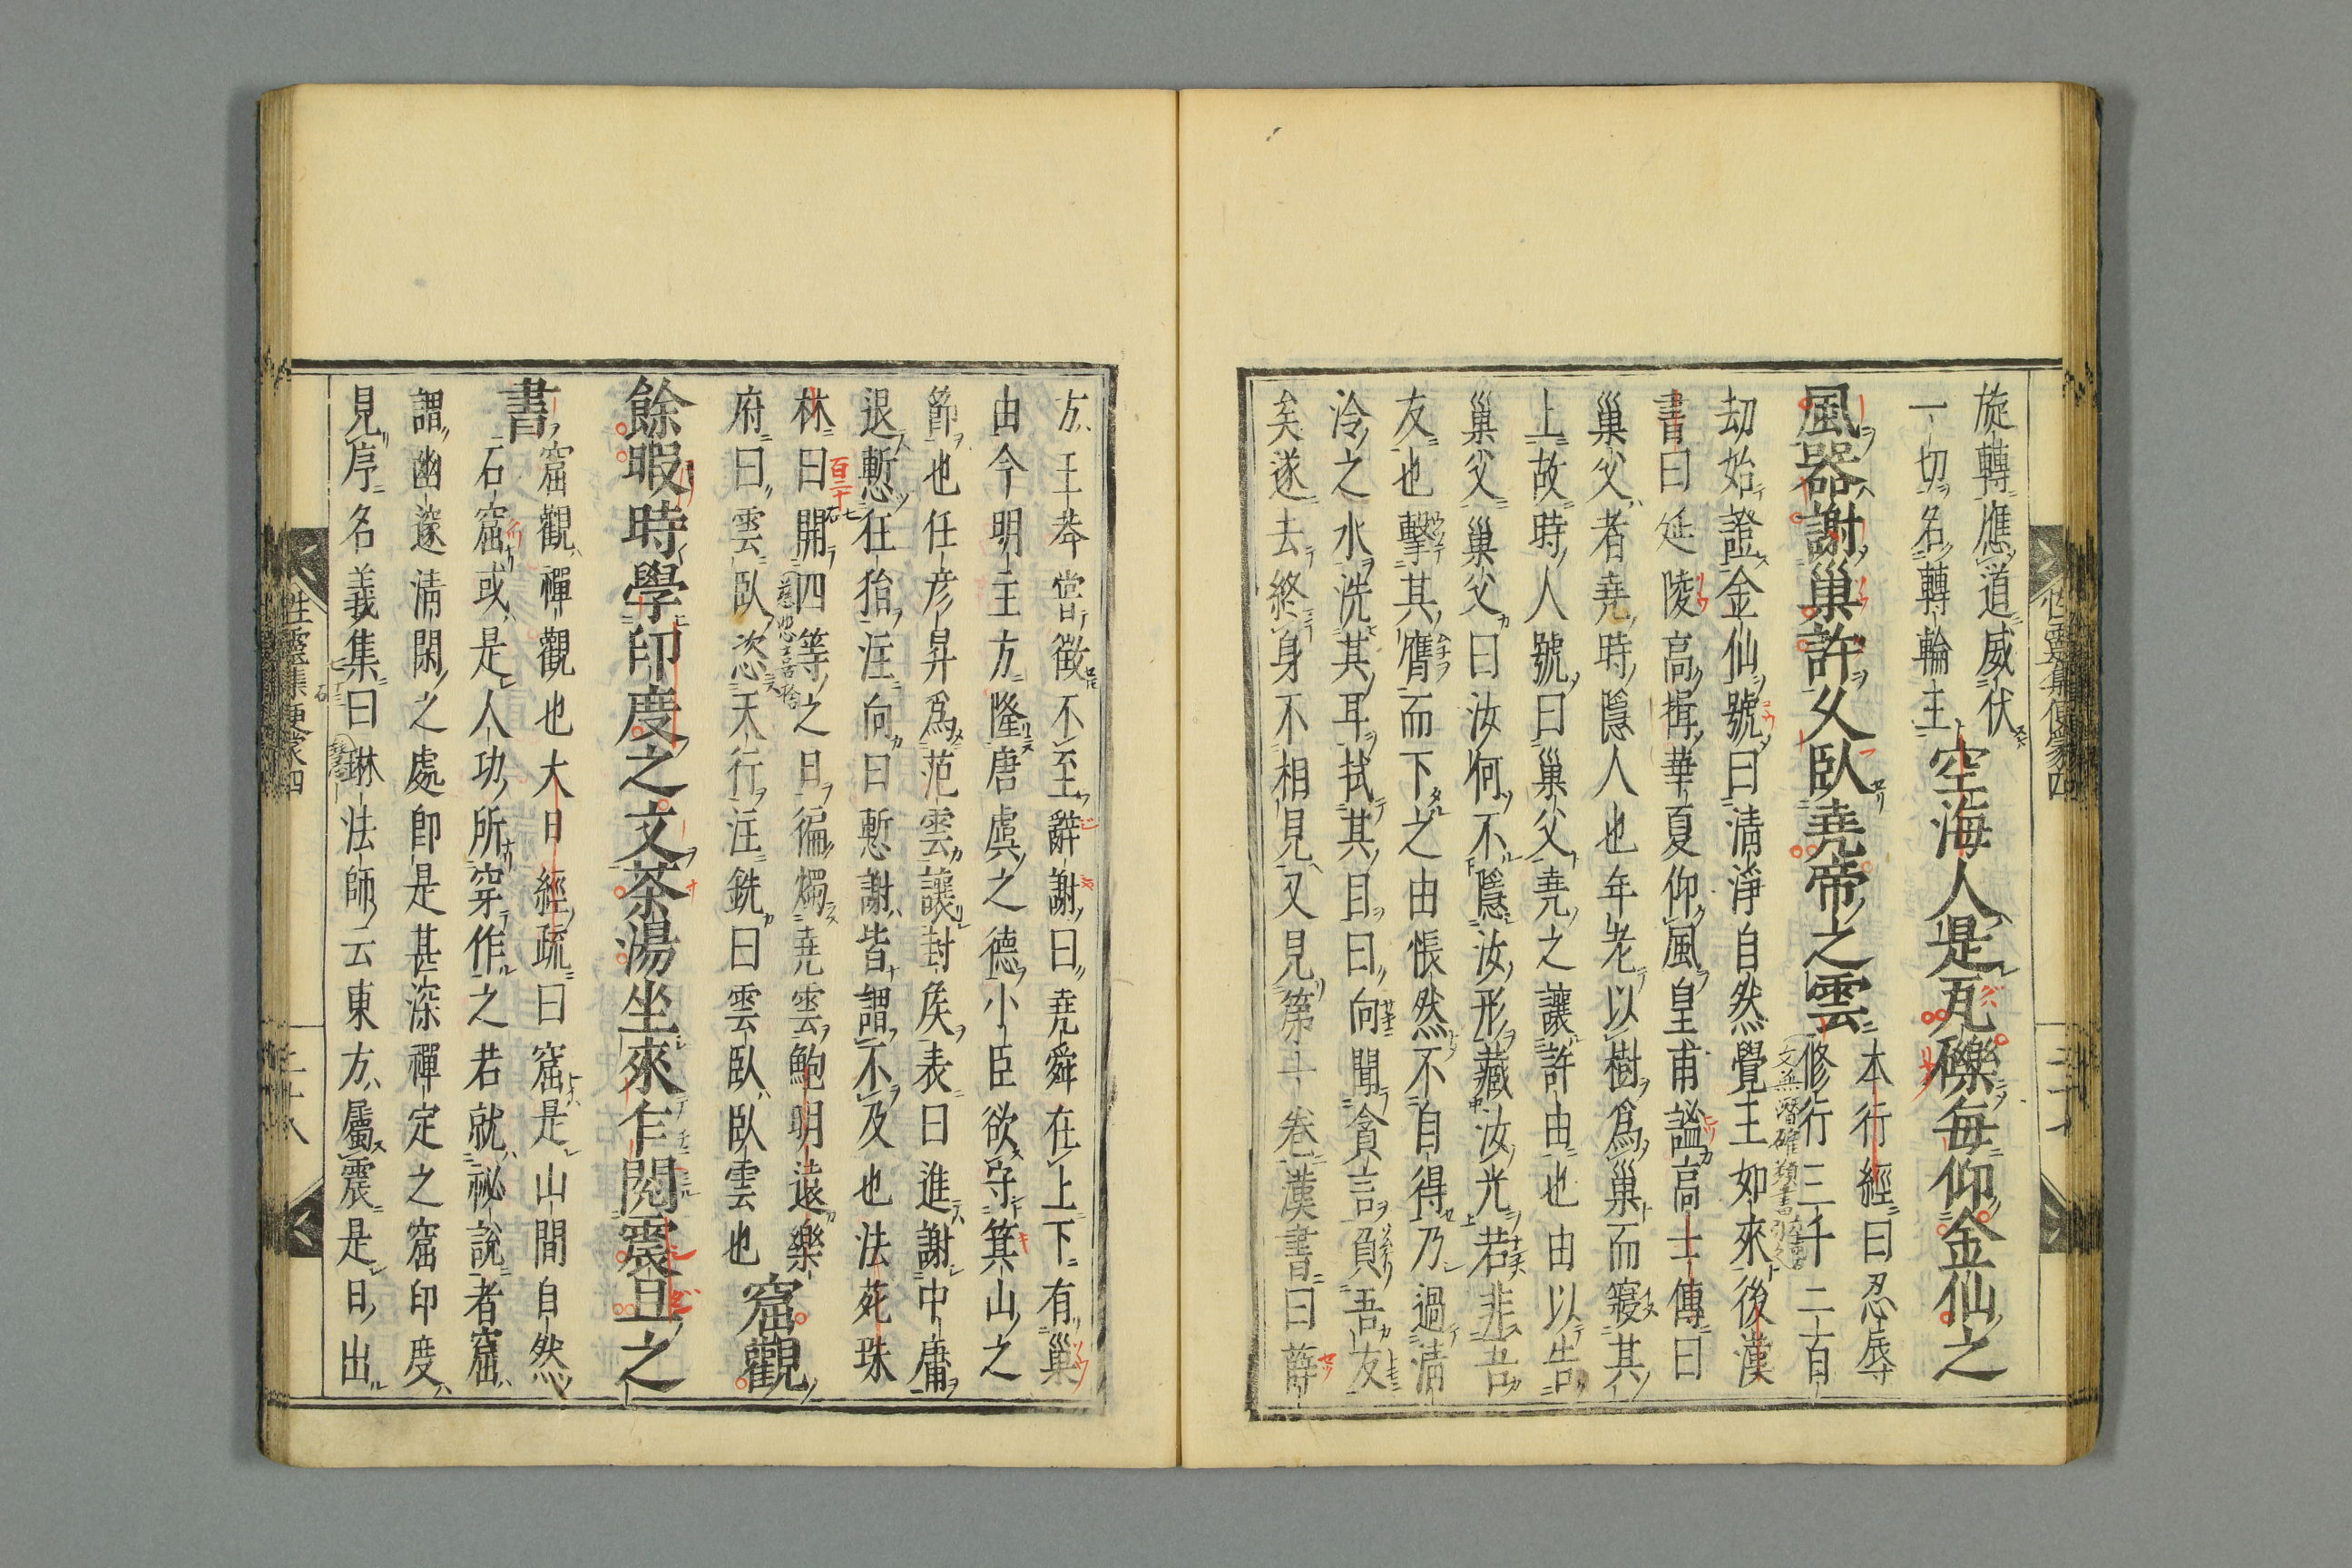 旋轉應道威伏
一切名轉輪王
空海人是瓦礫每仰金仙之
風器謝巢許久臥堯帝之雲
本行經曰忍辱
修行三千二百
劫始證金仙號曰清淨自然覺王如來後漢
書曰延陵高揖華夏仰風皇甫謐高士傳曰
巢父者堯時隱人也年老以樹爲巢而寢其
上故時人號曰巢父堯之讓許由也由以告
巢父巢父曰汝何不隱汝形藏汝光若非吾
友也擊其膺而下之由悵然不自得乃過清
冷之水洗其耳拭其目曰向聞貪言負吾友
矣遂去終身不相見又見第十卷漢書曰薛
方王莽嘗徵不至辭謝曰堯舜在上下有巢
由今明主方隆唐虞之德小臣欲守箕山之
節也任彥昇爲范雲讓封矦表曰進謝中庸
退慙狂狷注向曰慙謝皆謂不及也法苑珠
林曰開四等之日徧燭堯雲鮑明遠樂
府曰雲臥恣天行注銑曰雲臥臥雲也
窟觀
餘暇時學印度之文茶湯坐來乍閱震旦之
書
窟觀禪觀也大日經疏曰窟是山間自然
石窟或是人功所穿作之若就祕說者窟
謂幽邃清閑之處卽是甚深禪定之窟印度
見序名義集曰琳法師云東方屬震是日出
性靈集便蒙四